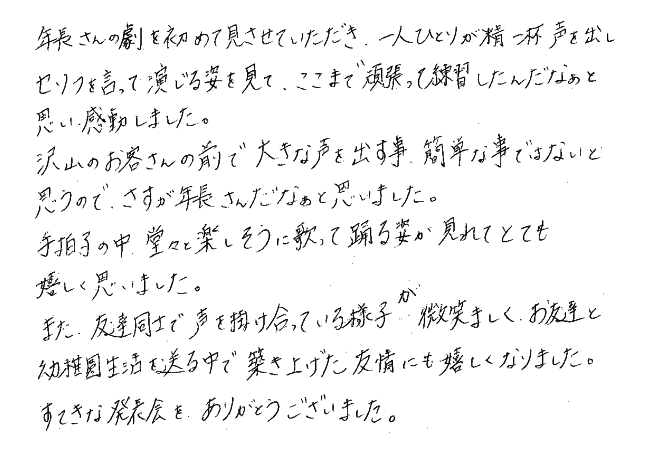 年長さんの劇を初めて見させていただき、一人ひとりが精一杯声を出し
セリフを言って演じる姿を見て、ここまで頑張って練習したんだなぁと
思い、感動しました。
沢山のお客さんの前で大きな声を出す事、簡単な事ではないと
思うので、さすが年長さんだなぁと思いました。
手拍子の中、堂々と楽しそうに歌って踊る姿が見れてとても
嬉しく思いました。
また、友達同士で声を掛け合っている様子が微笑ましく、お友達と
幼稚園生活を送る中で築き上げた友情にも嬉しくなりました。
すてきな発表会を、ありがとうございました。